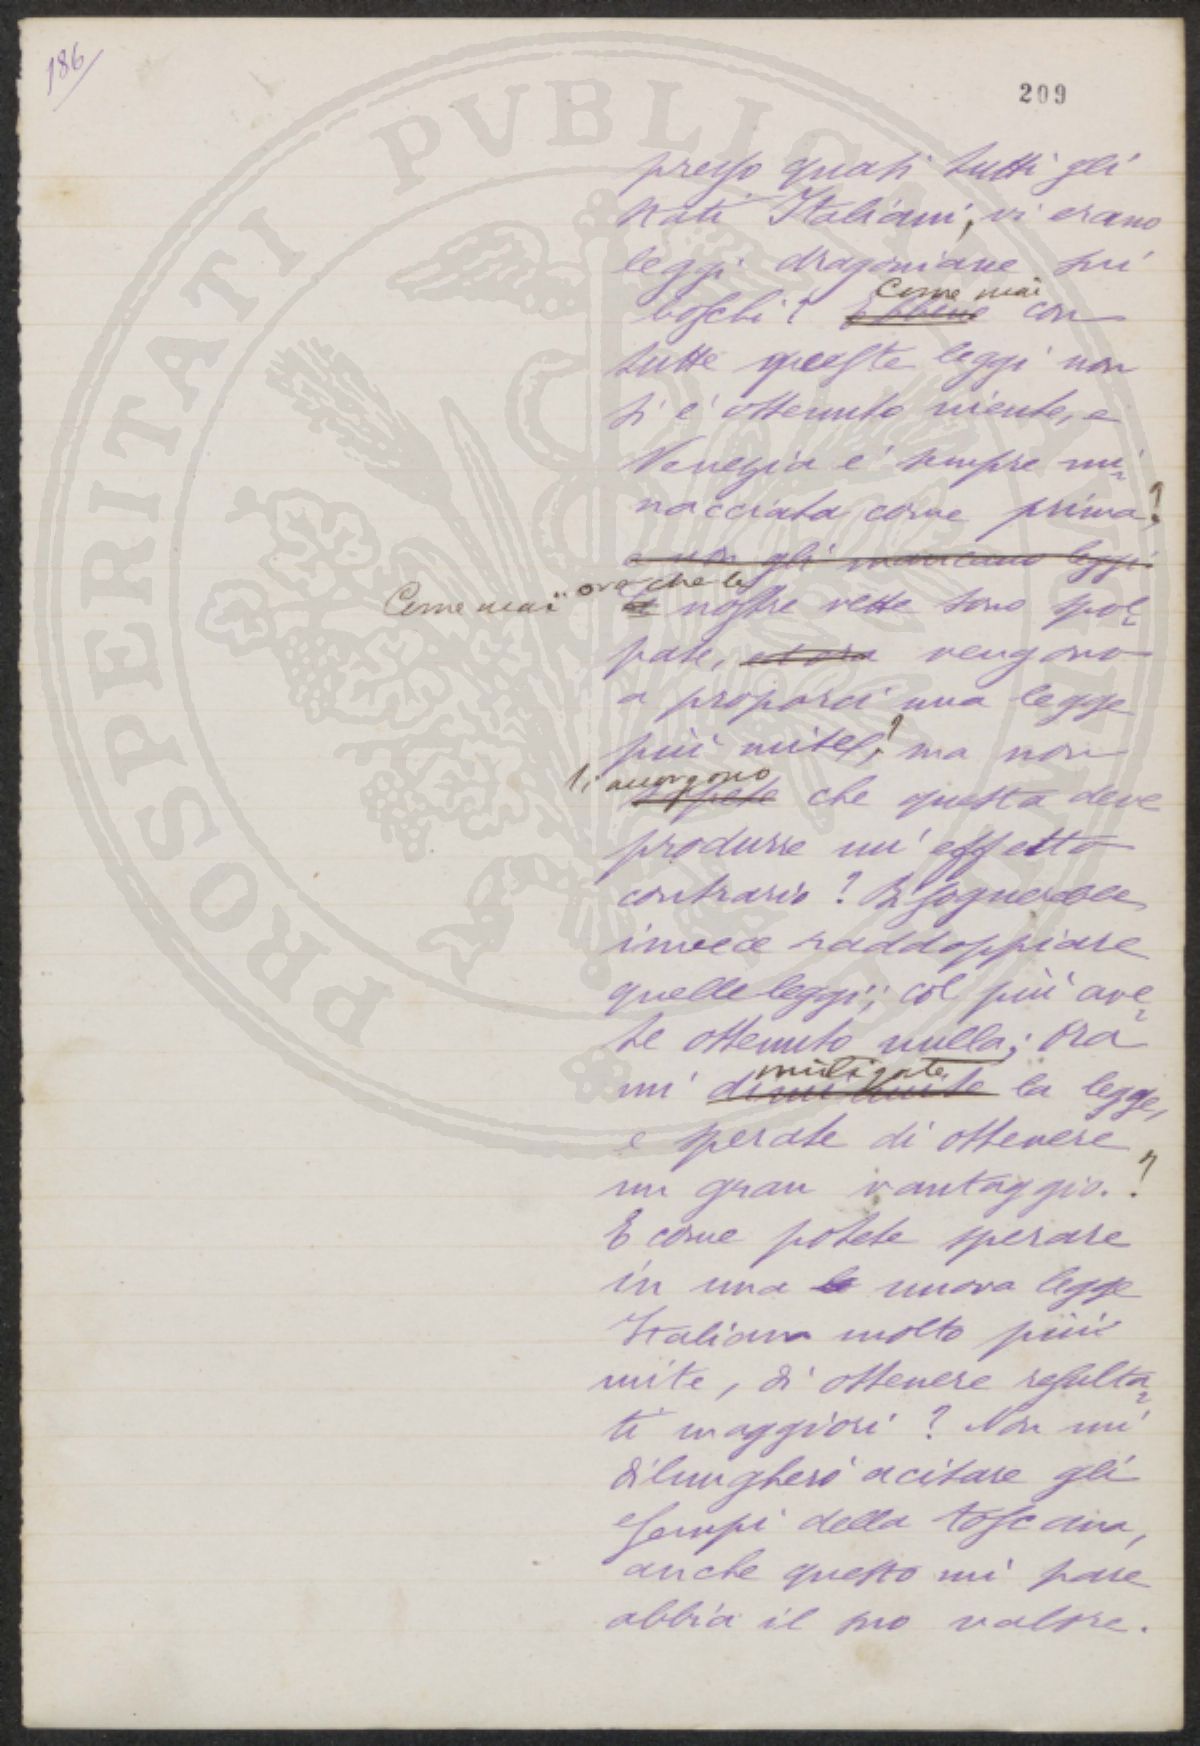 186
209
presso quasi tutti gli
stati Italiani, vi erano
leggi dragoniane sui
Come mai
boschi? Ebbene con
tutte queste leggi non
si e' ottenuto niente, e
Venezia e' sempre mi-
nacciata come prima?
e non gli mancano leggi.
Come mai ora che le
nostre vette sono spol-
pate, ed ora vengono
a proporci una legge
più mite? ma non
si accorgono
sapete che questa deve
produrre un' effetto
contrario? Bisognerebbe
invece raddoppiare
quelle leggi; col più ave-
te ottenuto nulla; ora
mitigate
mi diminuite la legge,
e sperate di ottenere
un gran vantaggio.!
E come potete sperare
in una le nuova legge
Italiana molto più
mite, di ottenere resulta-
ti maggiori? Non mi
dilungherò a citare gli
esempi della Toscana,
anche questo mi pare
abbia il suo valore.
PROSPERITATI PVBLICAE